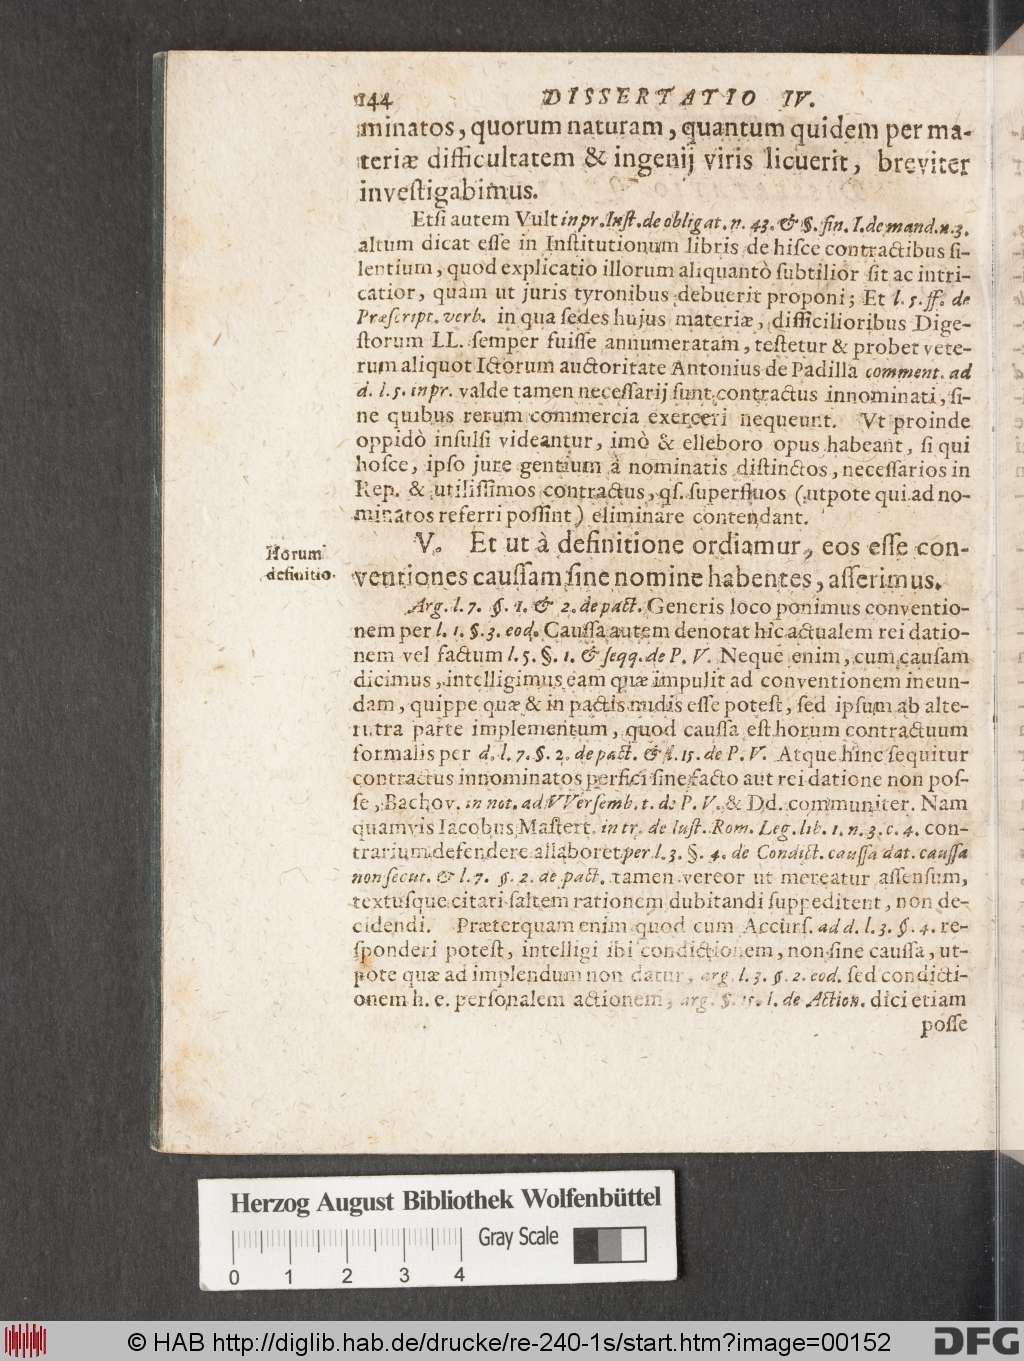 144 DISSERTATIO IV.
minatos, quorum naturam, quantum quidem per ma-
teriæ difficultatem & ingenij viris licuerit, breviter
investigabimus.
Etsi autem Vult in pr. Inst. de obligat. n. 43. & §. fin. I. de mand. n. 3.
altum dicat esse in Institutionum libris de hisce contractibus si-
lentium, quod explicatio illorum aliquantò subtilior sit ac intri-
catior, quàm ut juris tyronibus debuerit proponi; Et l. 5. ff. de
Præscript. verb. in qua sedes hujus materiæ, difficilioribus Dige-
storum LL. semper fuisse annumeratam, testetur & probet vete-
rum aliquot Ictorum auctoritate Antonius de Padilla comment. ad
d. l. 5. in pr. valde tamen necessarij sunt contractus innominati, si-
ne quibus rerum commercia exerceri nequeunt. Vt proinde
oppidò insulsi videantur, imò & elleboro opus habeant, si qui
hosce, ipso jure gentium à nominatis distinctos, necessarios in
Rep. & utilissimos contractus, qs. superfluos (utpote qui ad no-
minatos referri possint) eliminare contendant.
Horum
definitio.
V. Et ut à definitione ordiamur, eos esse con-
ventiones caussam sine nomine habentes, asserimus.
Arg. l. 7. §. 1. & 2. de pact. Generis loco ponimus conventio-
nem per l. 1. §. 3. eod. Caussa autem denotat hîc actualem rei datio-
nem vel factum l. 5. §. 1. & seqq. de P. V. Neque enim, cum causam
dicimus, intelligimus eam quæ impulit ad conventionem ineun-
dam, quippe quæ & in pactis nudis esse potest, sed ipsum ab alte-
rutra parte implementum, quod caussa est horum contractuum
formalis per d. l. 7. §. 2. de pact. & l. 15. de P. V. Atque hinc sequitur
contractus innominatos perfici sine facto aut rei datione non pos-
se, Bachov. in not. ad VVersemb. t. de P. V. & Dd. communiter. Nam
quamvis Iacobus Mastert. in tr. de Iust. Rom. Leg. lib. 1. n. 3. c. 4. con-
trarium defendere allaboret per l. 3. §. 4. de Condict. caussa dat. caussa
non secut. & l. 7. §. 2. de pact. tamen vereor ut mereatur assensum,
textusque citati saltem rationem dubitandi suppeditent, non de-
cidendi. Præterquam enim quod cum Accurs. ad d. l. 3. §. 4. re-
sponderi potest, intelligi ibi condictionem, non sine caussa, ut-
pote quæ ad implendum non datur, arg. l. 3. §. 2. eod. sed condicti-
onem h. e. personalem actionem, arg. §. 15. I. de Action. dici etiam
posse
Herzog August Bibliothek Wolfenbüttel
Gray Scale
0 1 2 3 4
© HAB http://diglib.hab.de/drucke/re-240-1s/start.htm?image=00152
DFG